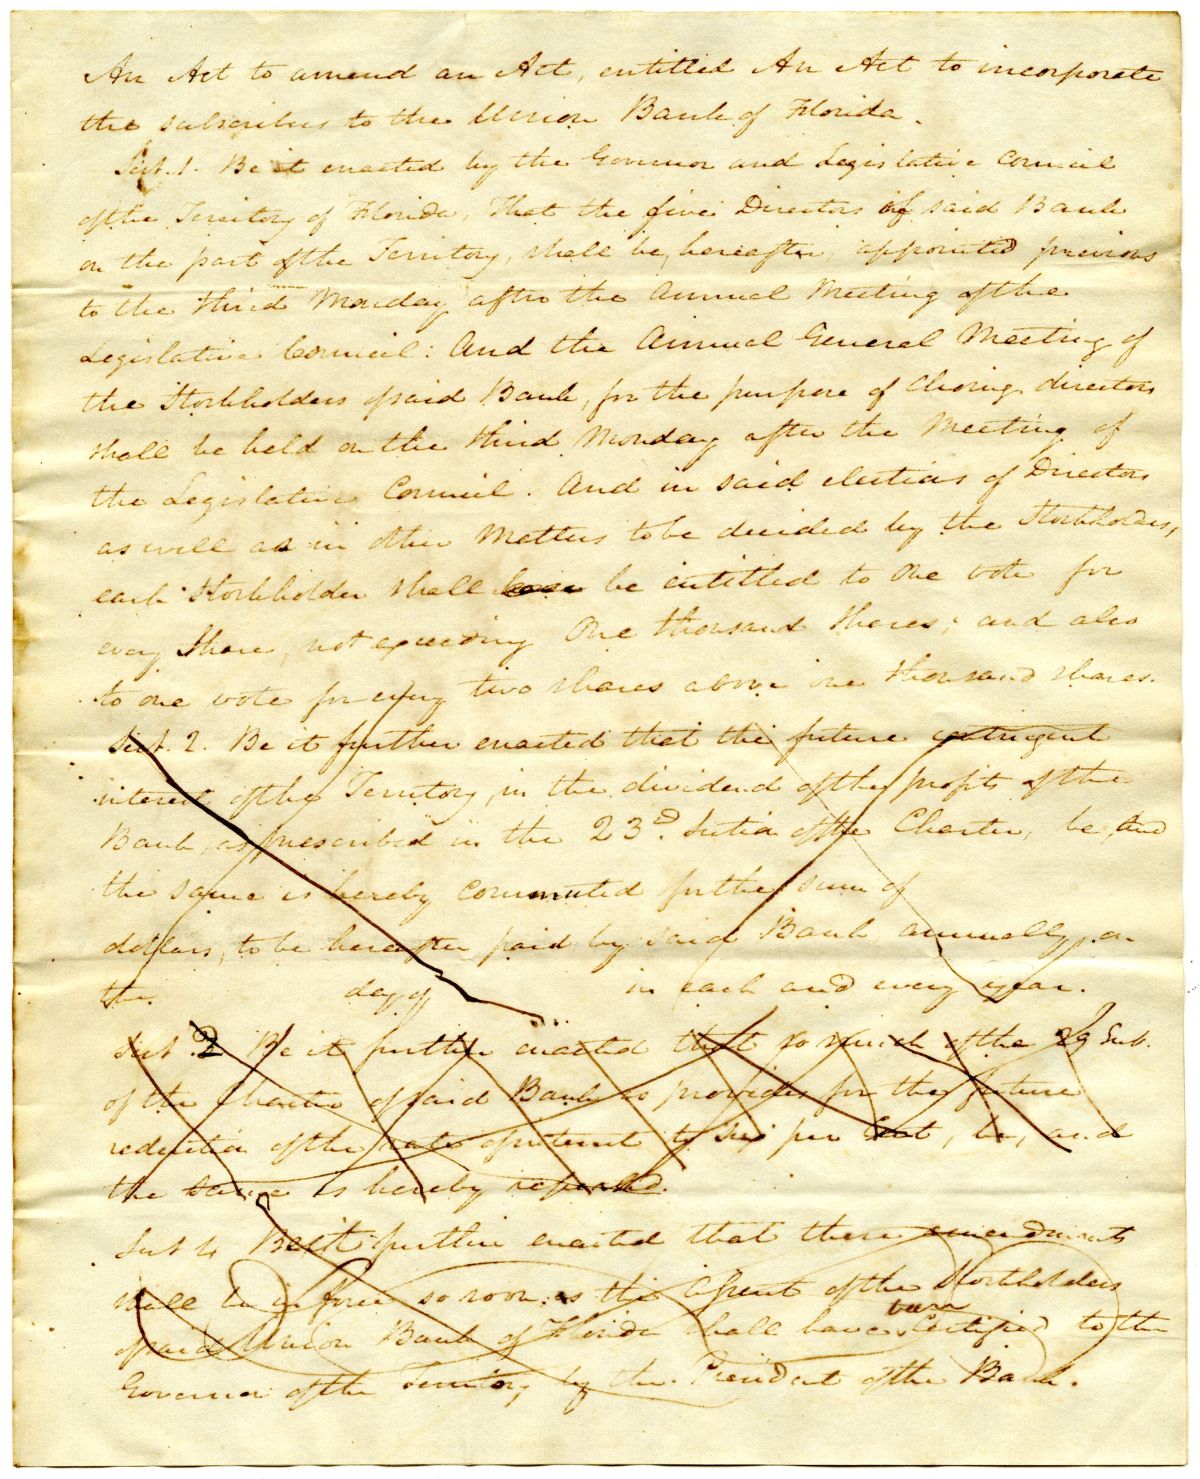 An Act to amend an Act, entitled An Act to incorporate
the subscribers to the Union Bank of Florida.
Sect. 1. Be it enacted by the Governor and Legislative Council
of the Territory of Florida, That the five Directors of said Bank
on the part of the Territory, shall be, hereafter, appointed previous
to the third Monday after the Annual Meeting of the
Legislative Council: And the Annual General Meeting of
the Stockholders of said Bank, for the purpose of chosing directors
shall be held on the third Monday after the Meeting of
the Legislative Council. And in said elections of Directors
as well as in other Matters to be decided by the Stockholders,
each Stockholder shall be entitled to one vote for
every Share, not exceeding One thousand Shares; and also
to one vote for every two shares above one thousand shares.
Sect. 2. Be it further enacted that the future contingent
interest of the Territory, in the dividend of the profits of the
Bank, as prescribed in the 23d. Section of the Charter, be, and
the same is hereby commuted for the sum of
dollars, to be hereafter paid by said Bank annually, on
the day of in each and every year.
Sect. 2 Be it further enacted that so much of the 29 Sub.
of the Charter of said Bank as provides for the future
reduction of the rate of interest to six per Cent, be, and
the same is hereby repealed.
Sect 4 Be it further enacted that these amendments
shall be in force so soon as the Assent of the Stockholders
of said Union Bank of Florida shall have been Certified to the
Governor of the Territory by the President of the Bank.